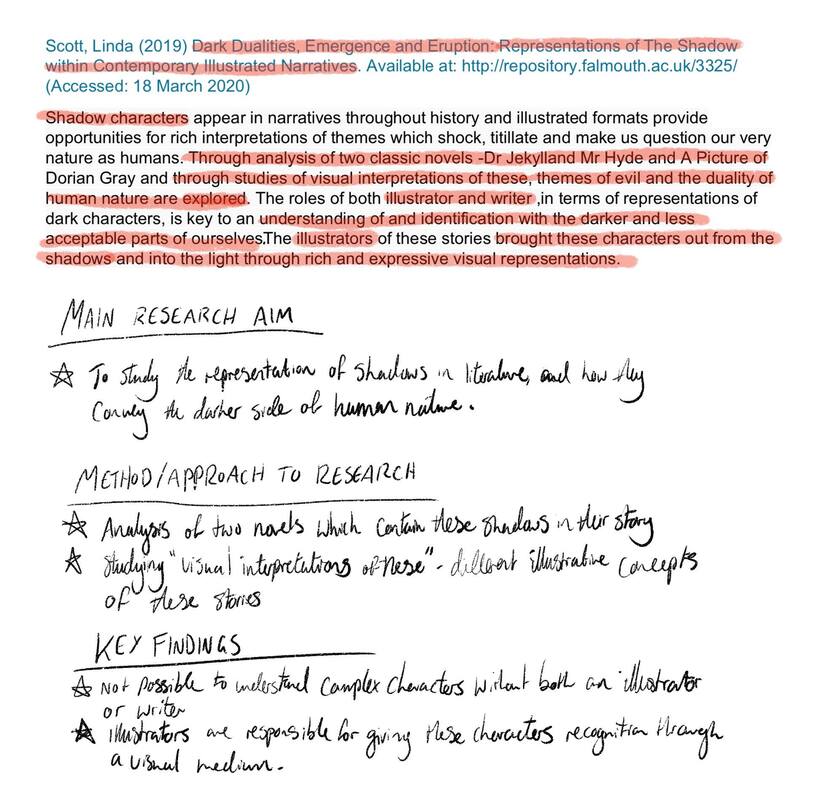 Scott, Linda (2019) Dark Dualities, Emergence and Eruption: Representations of The Shadow
within Contemporary Illustrated Narratives. Available at: http://repository.falmouth.ac.uk/3325/
(Accessed: 18 March 2020)
Shadow characters appear in narratives throughout history and illustrated formats provide
opportunities for rich interpretations of themes which shock, titillate and make us question our very
nature as humans. Through analysis of two classic novels -Dr Jekylland Mr Hyde and A Picture of
Dorian Gray and through studies of visual interpretations of these, themes of evil and the duality of
human nature are explored. The roles of both illustrator and writer ,in terms of representations of
dark characters, is key to an understanding of and identification with the darker and less
acceptable parts of ourselves.The illustrators of these stories brought these characters out from the
shadows and into the light through rich and expressive visual representations.
MAIN RESEARCH AIM
☆ To study the representation of shadows in literature, and how they
convey the darker side of human nature.
METHOD/APPROACH TO RESEARCH
☆ Analysis of two novels which contain these shadows in their story
☆ Studying "visual interpretations of these" - different illustrative concepts
of these stories
KEY FINDINGS
☆ Not possible to understand complex characters without both an illustrator
or writer
☆ illustrators are responsible for giving these characters recognition through
a visual medium.